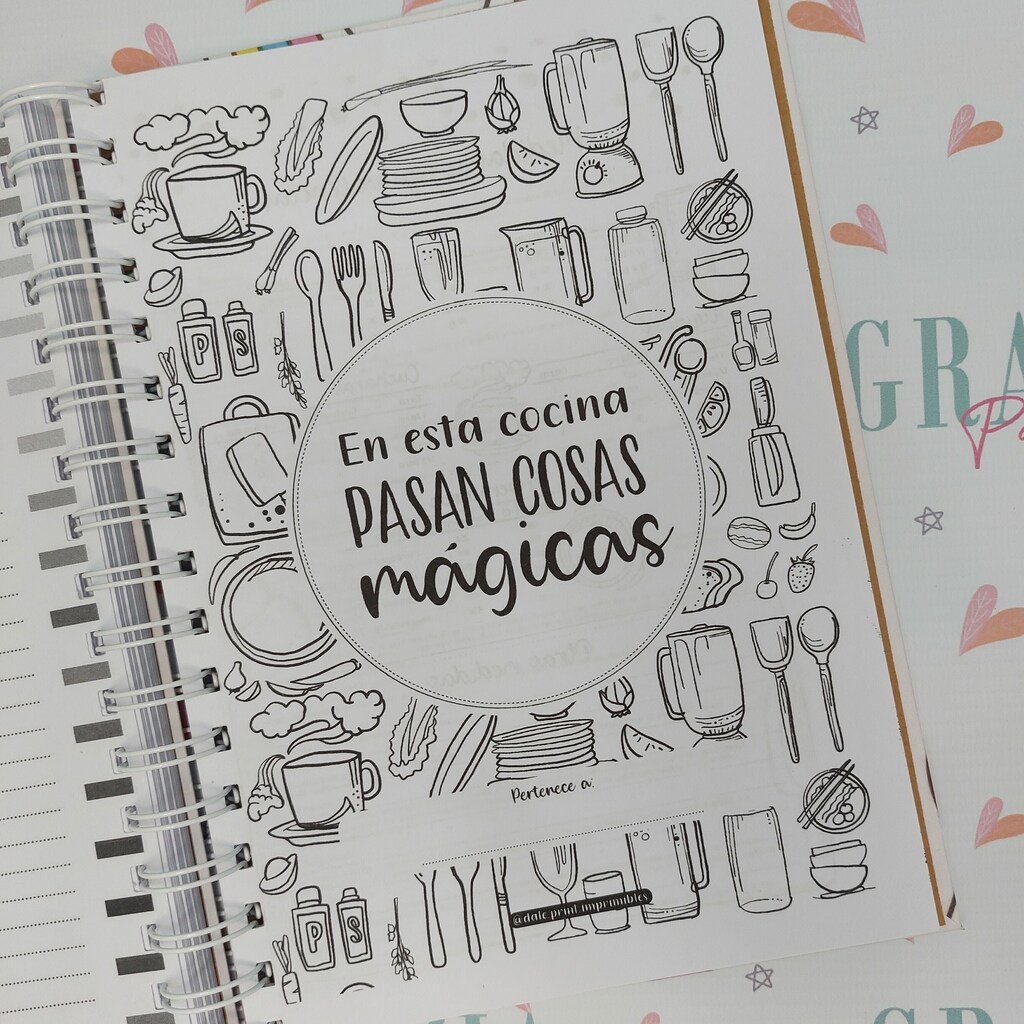 En esta cocina
PASAN COSAS
mágicas
P S
Pertenece a:
@dale.print.imprimibles
P S
GRA